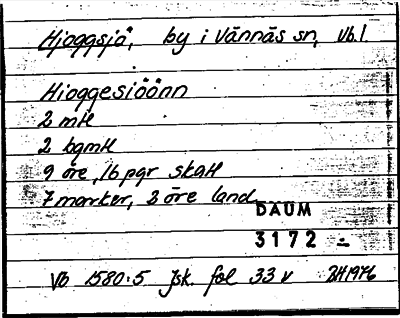 Hjoggsjö, by i Vännäs sn, Vb.l
Hioggesiöönn
2 mtl
2 bgmtl
9 öre, 16 pgr skatt
7 marker, 2 öre land
DAUM
3172 -
Vb 1580:5 Jsk. fol 33 v BH 1976